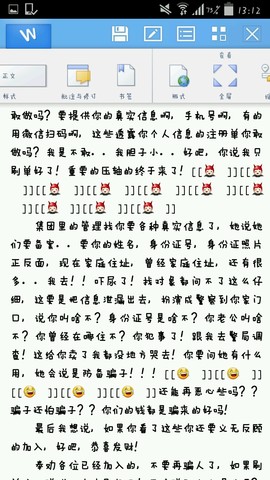 75%
13:12
W
查看
正文
样式
批注与修订
书签
版式
全屏
敢做吗？要提供你的真实信息啊，手机号啊，有的
用微信扫码啊，这些透露你个人信息的注册单你敢
做吗？我是不敢．．我胆子小．．好吧，你说我只
刷单好了！重要的压轴的终于来了！[[ ]][[
]][[ ]][[ ]][[ ]][[
]][[ ]][[ ]]
集团里的管理找你要各种真实信息了，她说她
们要备案．．要你的姓名，身份证号，身份证照片
正反面，现在家庭住址，曾经家庭住址，还有很
多．．我去！！吓尿了！找对象都问不了这么仔
细，这要是把信息泄漏出去，扮演成警察到你家门
口，说你叫啥不？身份证号是啥不？你老公叫啥
不？你曾经在哪住不？你犯事了！跟我去警局调
查！这给你卖了我都没地方哭去！你要问她有什么
用，她会说是防备骗子！！！[[ ]][[
]][[ ]][[ ]]还能再恶心些吗？？
骗子还怕骗子？？你们的钱都是骗来的好吗！
最后我想说，如果你看了这些你还要义无反顾
的加入，好吧，恭喜发财！
奉劝各位已经加入的，不要再骗人了，如果刷